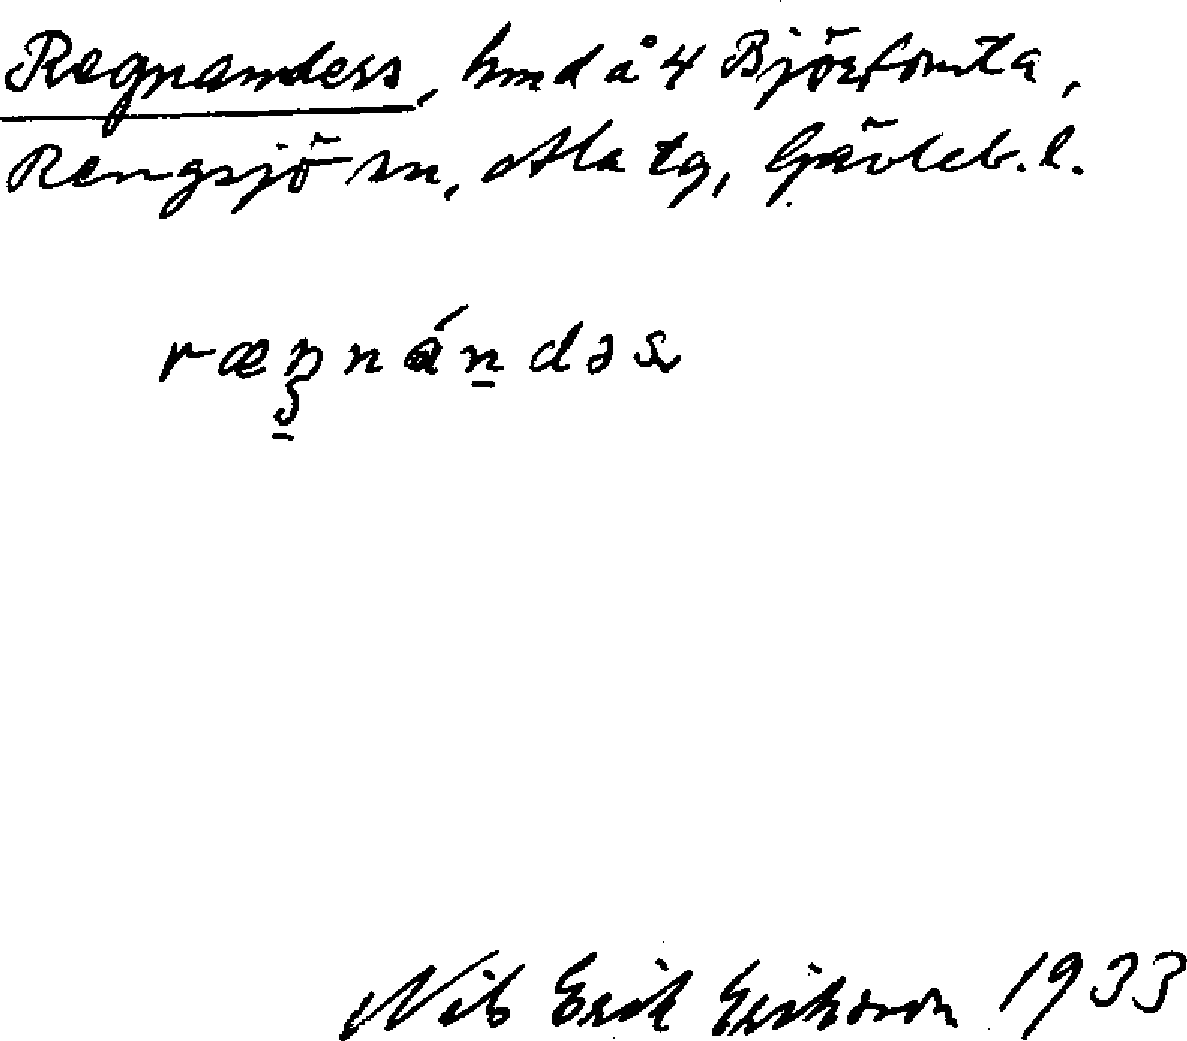 Regnandess, hmd å 4 Björtomta,
Rengsjö sn, Ala tg, Gävleb. l.
ræŋnándəs
Nils Erik Eriksson 1933